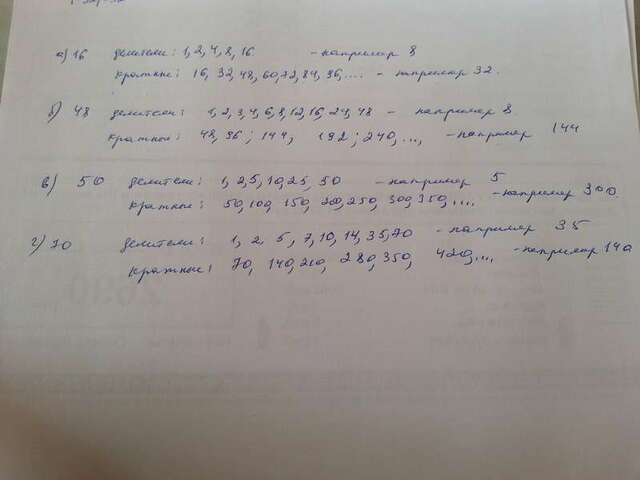 а) 16 делители: 1, 2, 4, 8, 16 - например 8
кратные: 16, 32, 48, 60, 72, 84, 96,.... - например 32.
б) 48 делители: 1, 2, 3, 4, 6, 8, 12, 16, 24, 48 - например 8.
кратные: 48, 96; 144, 192; 240,..., - например 144
в) 50 делители: 1, 2, 5, 10, 25, 50 - например 5
кратные: 50, 100, 150, 200, 250, 300, 350,.... - например 300.
г) 70 делители: 1, 2, 5, 7, 10, 14, 35, 70 - например 35
кратные: 70, 140, 210, 280, 350, 420,..., - например 140